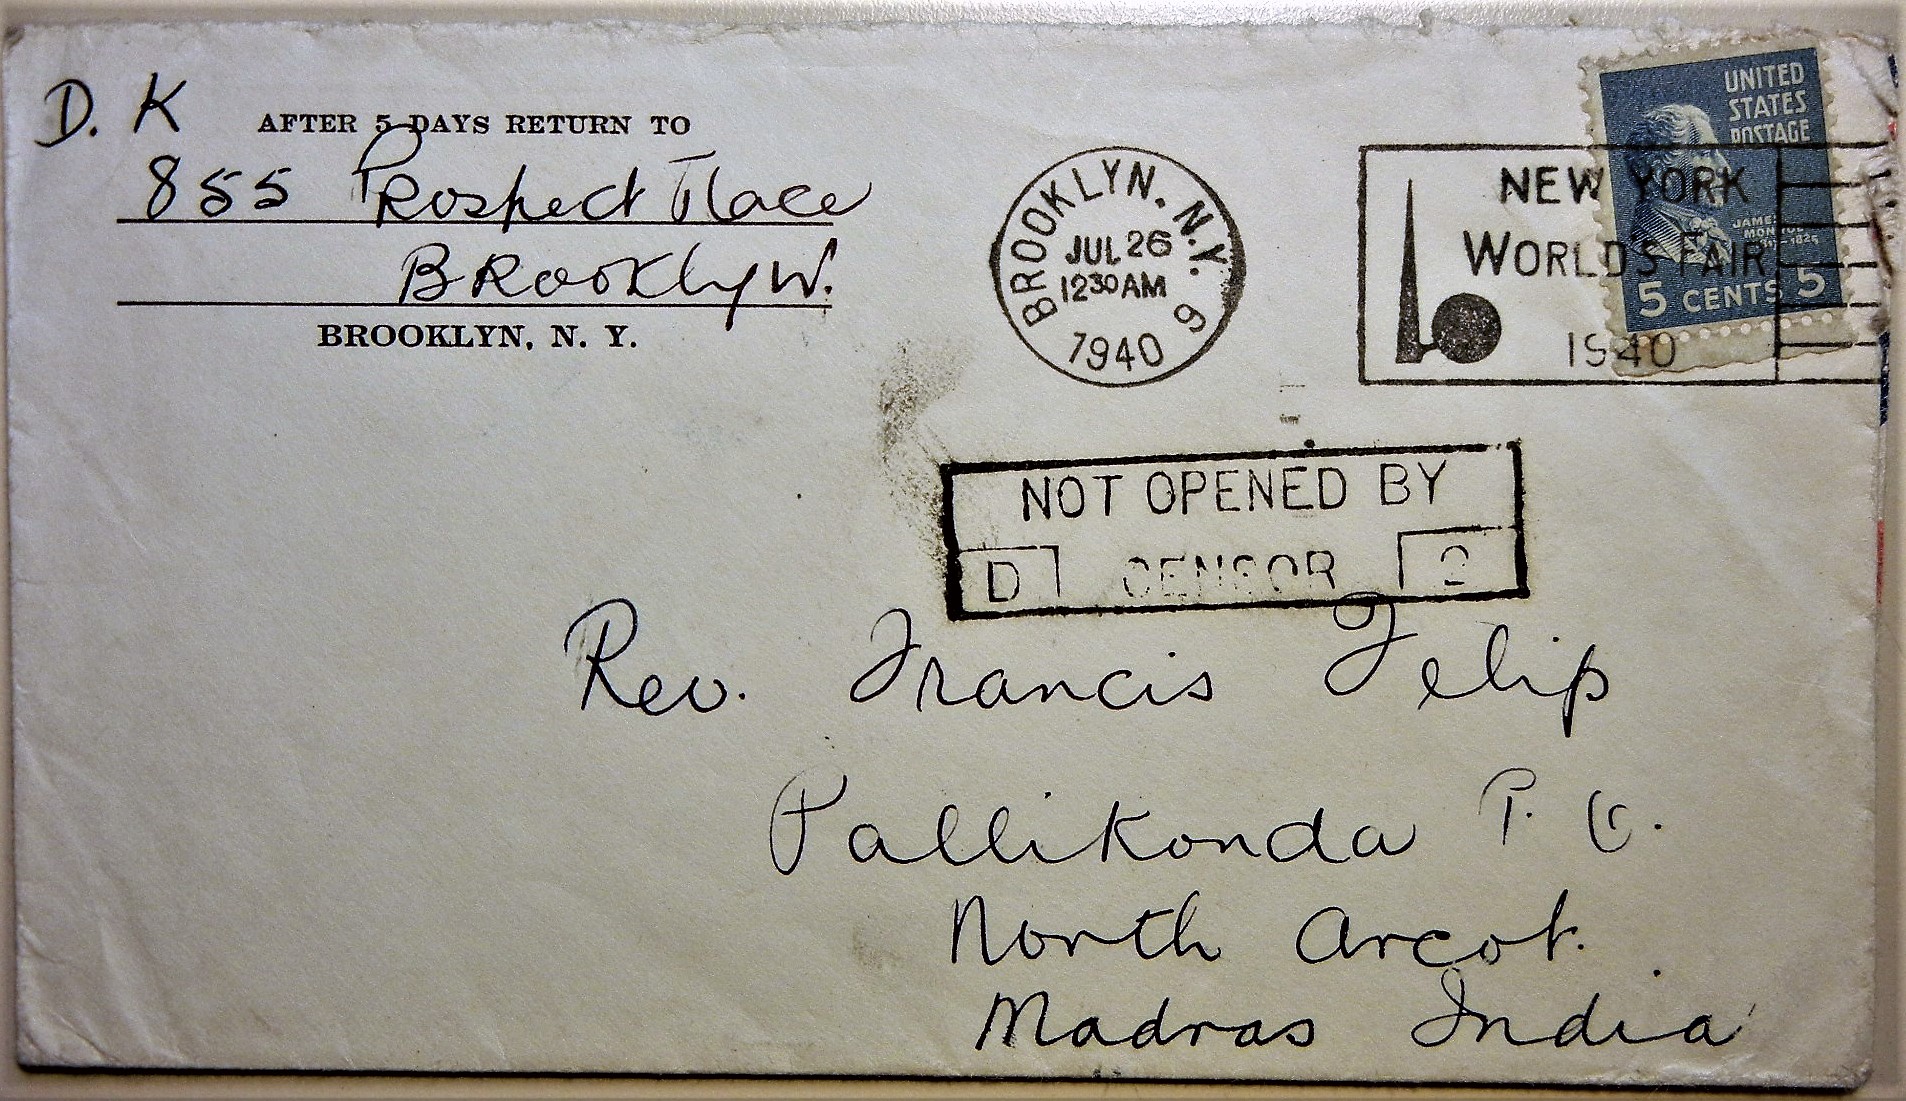 D. K
AFTER 5 DAYS RETURN TO
855 Prospect Place
Brooklyn.
BROOKLYN, N. Y.
BROOKLYN. N.Y. 9
JUL 26
12 30 AM
1940
NEW YORK
WORLD'S FAIR
1940
UNITED
STATES
POSTAGE
JAMES
MONROE
5 CENTS 5
NOT OPENED BY
D CENSOR 2
Rev. Francis Felip
Pallikonda P.
North Arcot.
Madras India